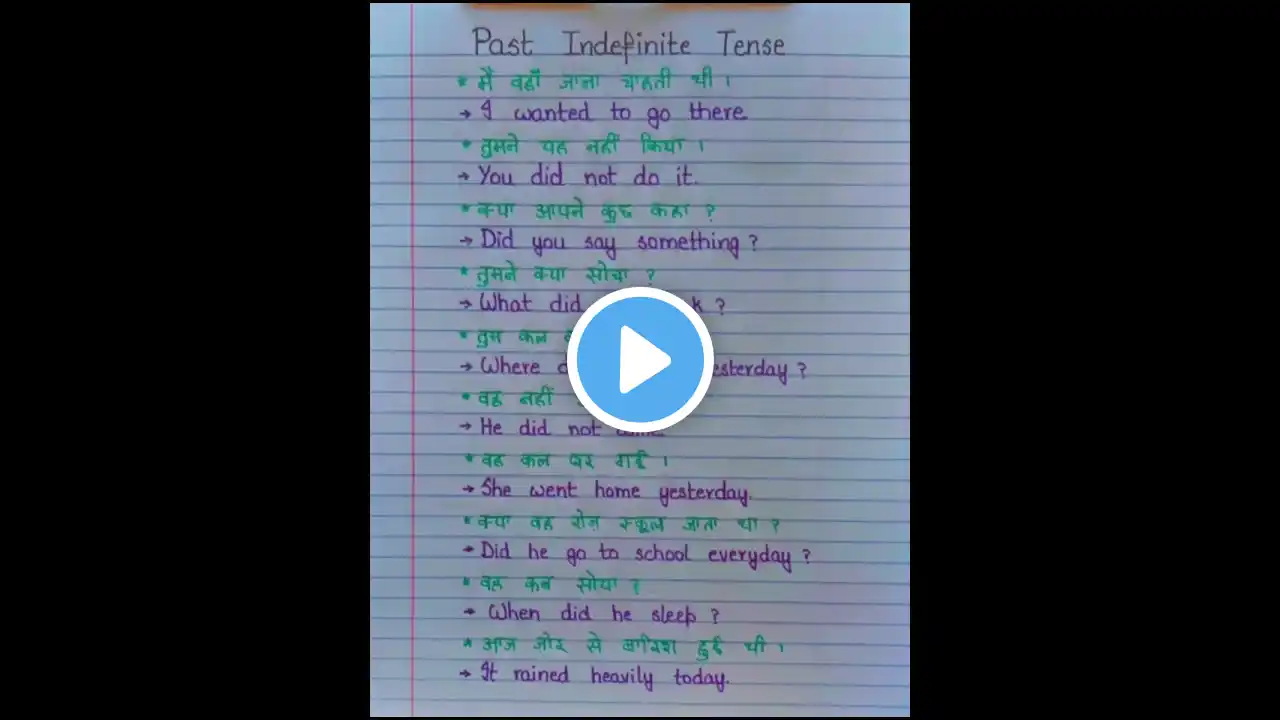 Past Indefinite Tense
* मैं वहाँ जाना चाहती थी ।
→ I wanted to go there
* तुमने यह नहीं किया ।
→ You did not do it.
* क्या आपने कुछ कहा ?
→ Did you say something ?
* तुमने क्या सोचा ?
→ What did ?
* तुम कल
→ Where yesterday ?
* वह नहीं
→ He did not
* वह कल घर गई ।
→ She went home yesterday.
* क्या वह रोज़ स्कूल जाता था ?
→ Did he go to school everyday ?
* वह कब सोया ?
→ When did he sleep ?
* आज जोर से बारिश हुई थी ।
→ It rained heavily today.